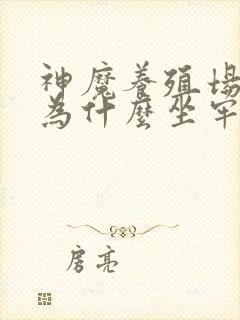 神魔養殖場
為什麼坐牢
房亮